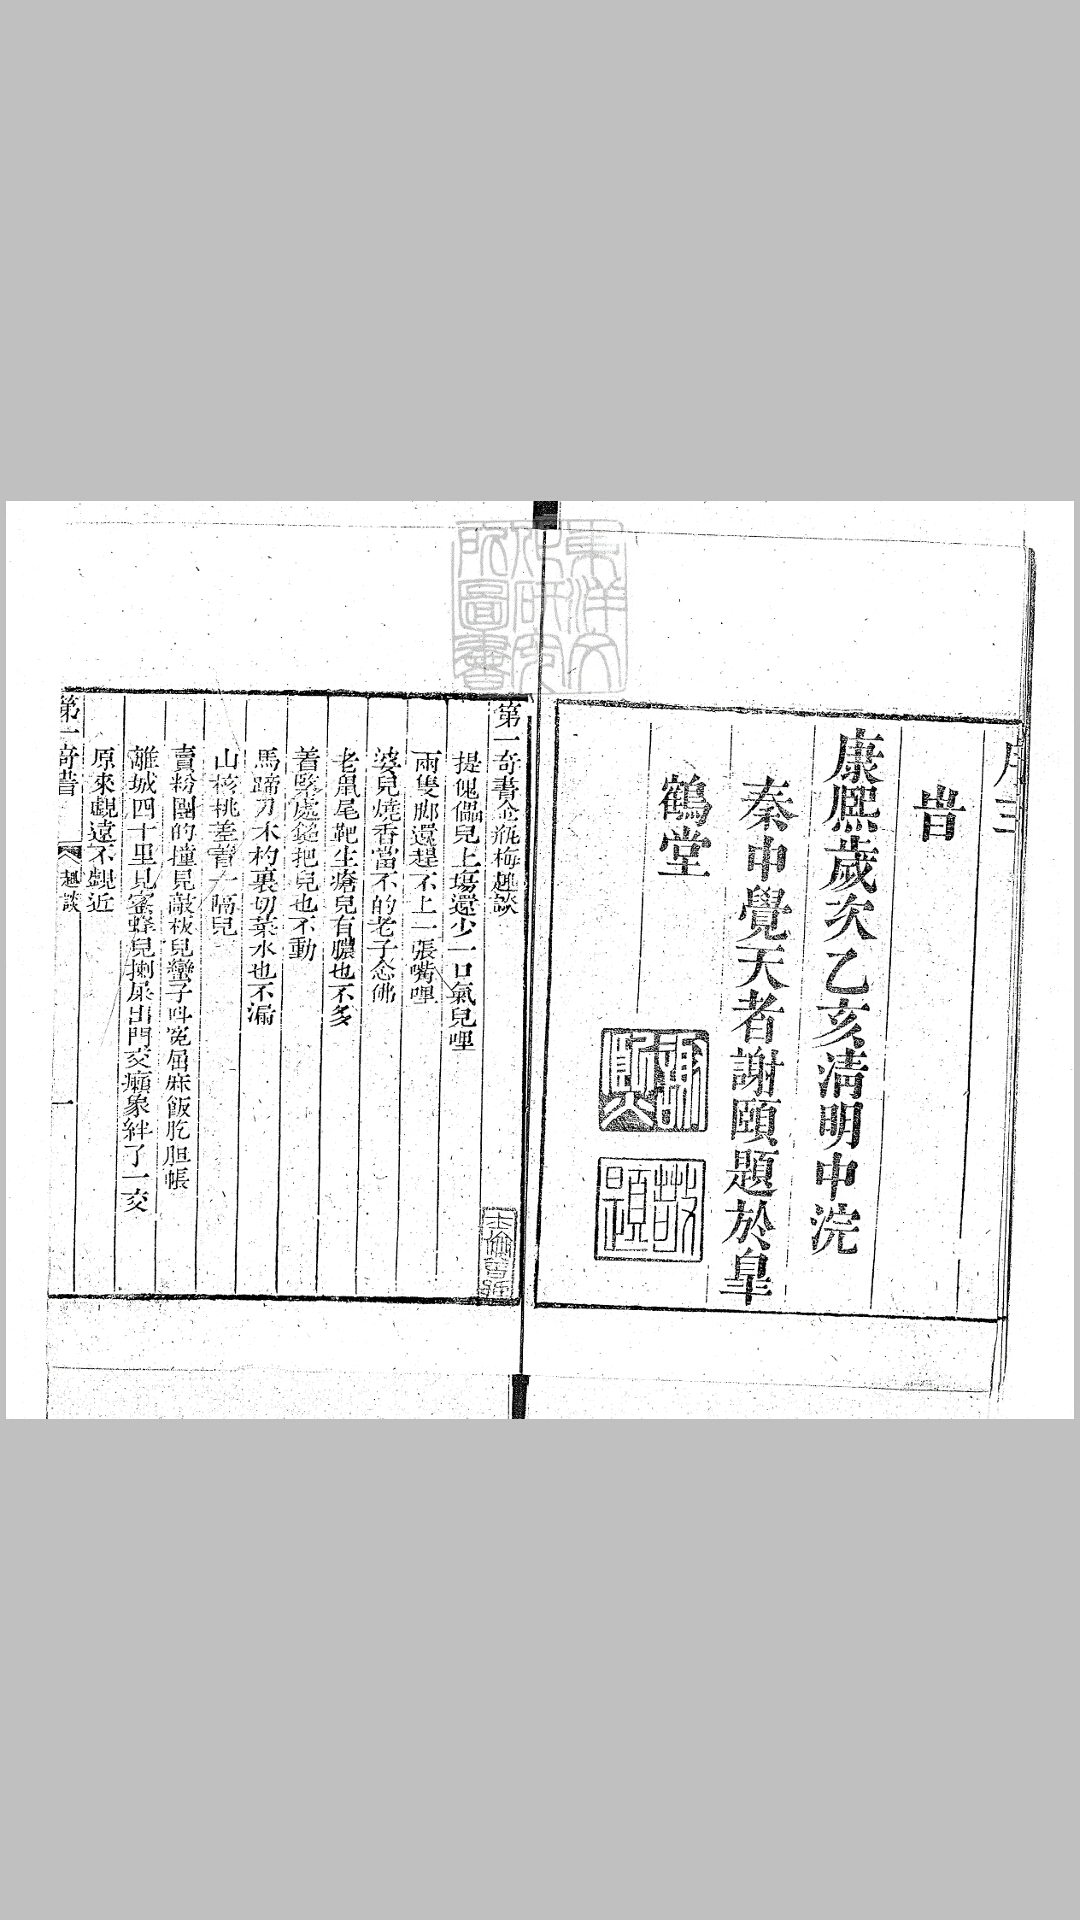 序三
旹
康熙歲次乙亥清明中浣
秦中覺天者謝頤題於皐
鶴堂
東洋文化研究所圖書
第一奇書金瓶梅趣談
提傀儡兒上塲還少一口氣兒哩
兩隻脚還趕不上一張嘴哩
婆兒燒香當不的老子念佛
老鼠尾靶生瘡兒有膿也不多
着緊處鎚把兒也不動
馬蹄刀木杓裏切菜水也不漏
山核桃差着一隔兒
賣粉團的撞見敲板兒蠻子叫冤屈麻飯肐胆帳
離城四十里見蜜蜂兒揦屎出門交癩象絆了一交
原來覷遠不覷近
第一奇書
趣談
一